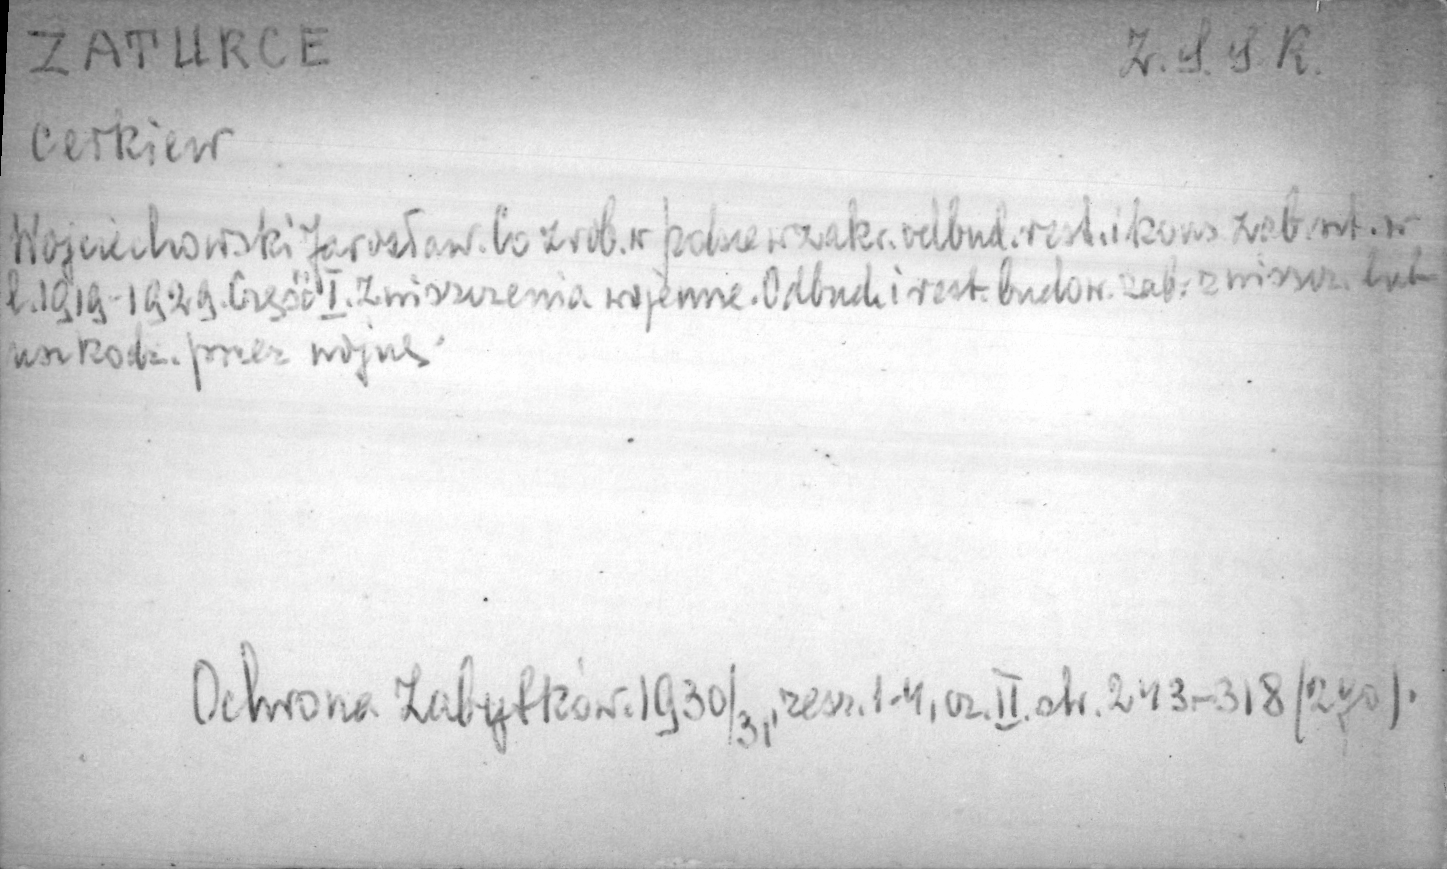 ZATURCE Z.S.S.R.
Cerkiew
Wojciechowski Jarosław. Co zrob. w polsce w zakr. odbud. rest. i kons. zab. szt. w
l. 1919-1929. Część I. Zniszczenia wojenne. Odbud. i rest. budow. zab. zniszcz. lub
uszkodz. przez wojnę.
Ochrona Zabytków. 1930/31, zesz. 1-4, cz. II. str. 243-318 (290).